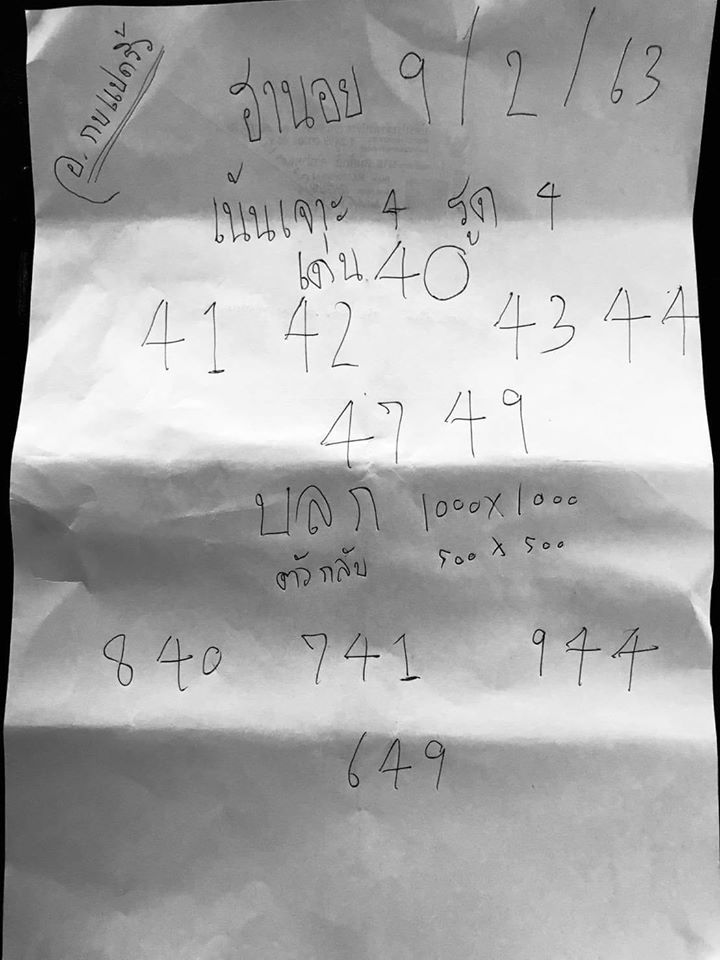 อ. กบแปดริ้ว
ฮานอย 9/2/63
เน้นเจาะ 4 รูด 4
เด่น 40
41 42 43 44
47 49
ปลก 1000x1000
ตัวกลับ 500x500
840 741 944
649